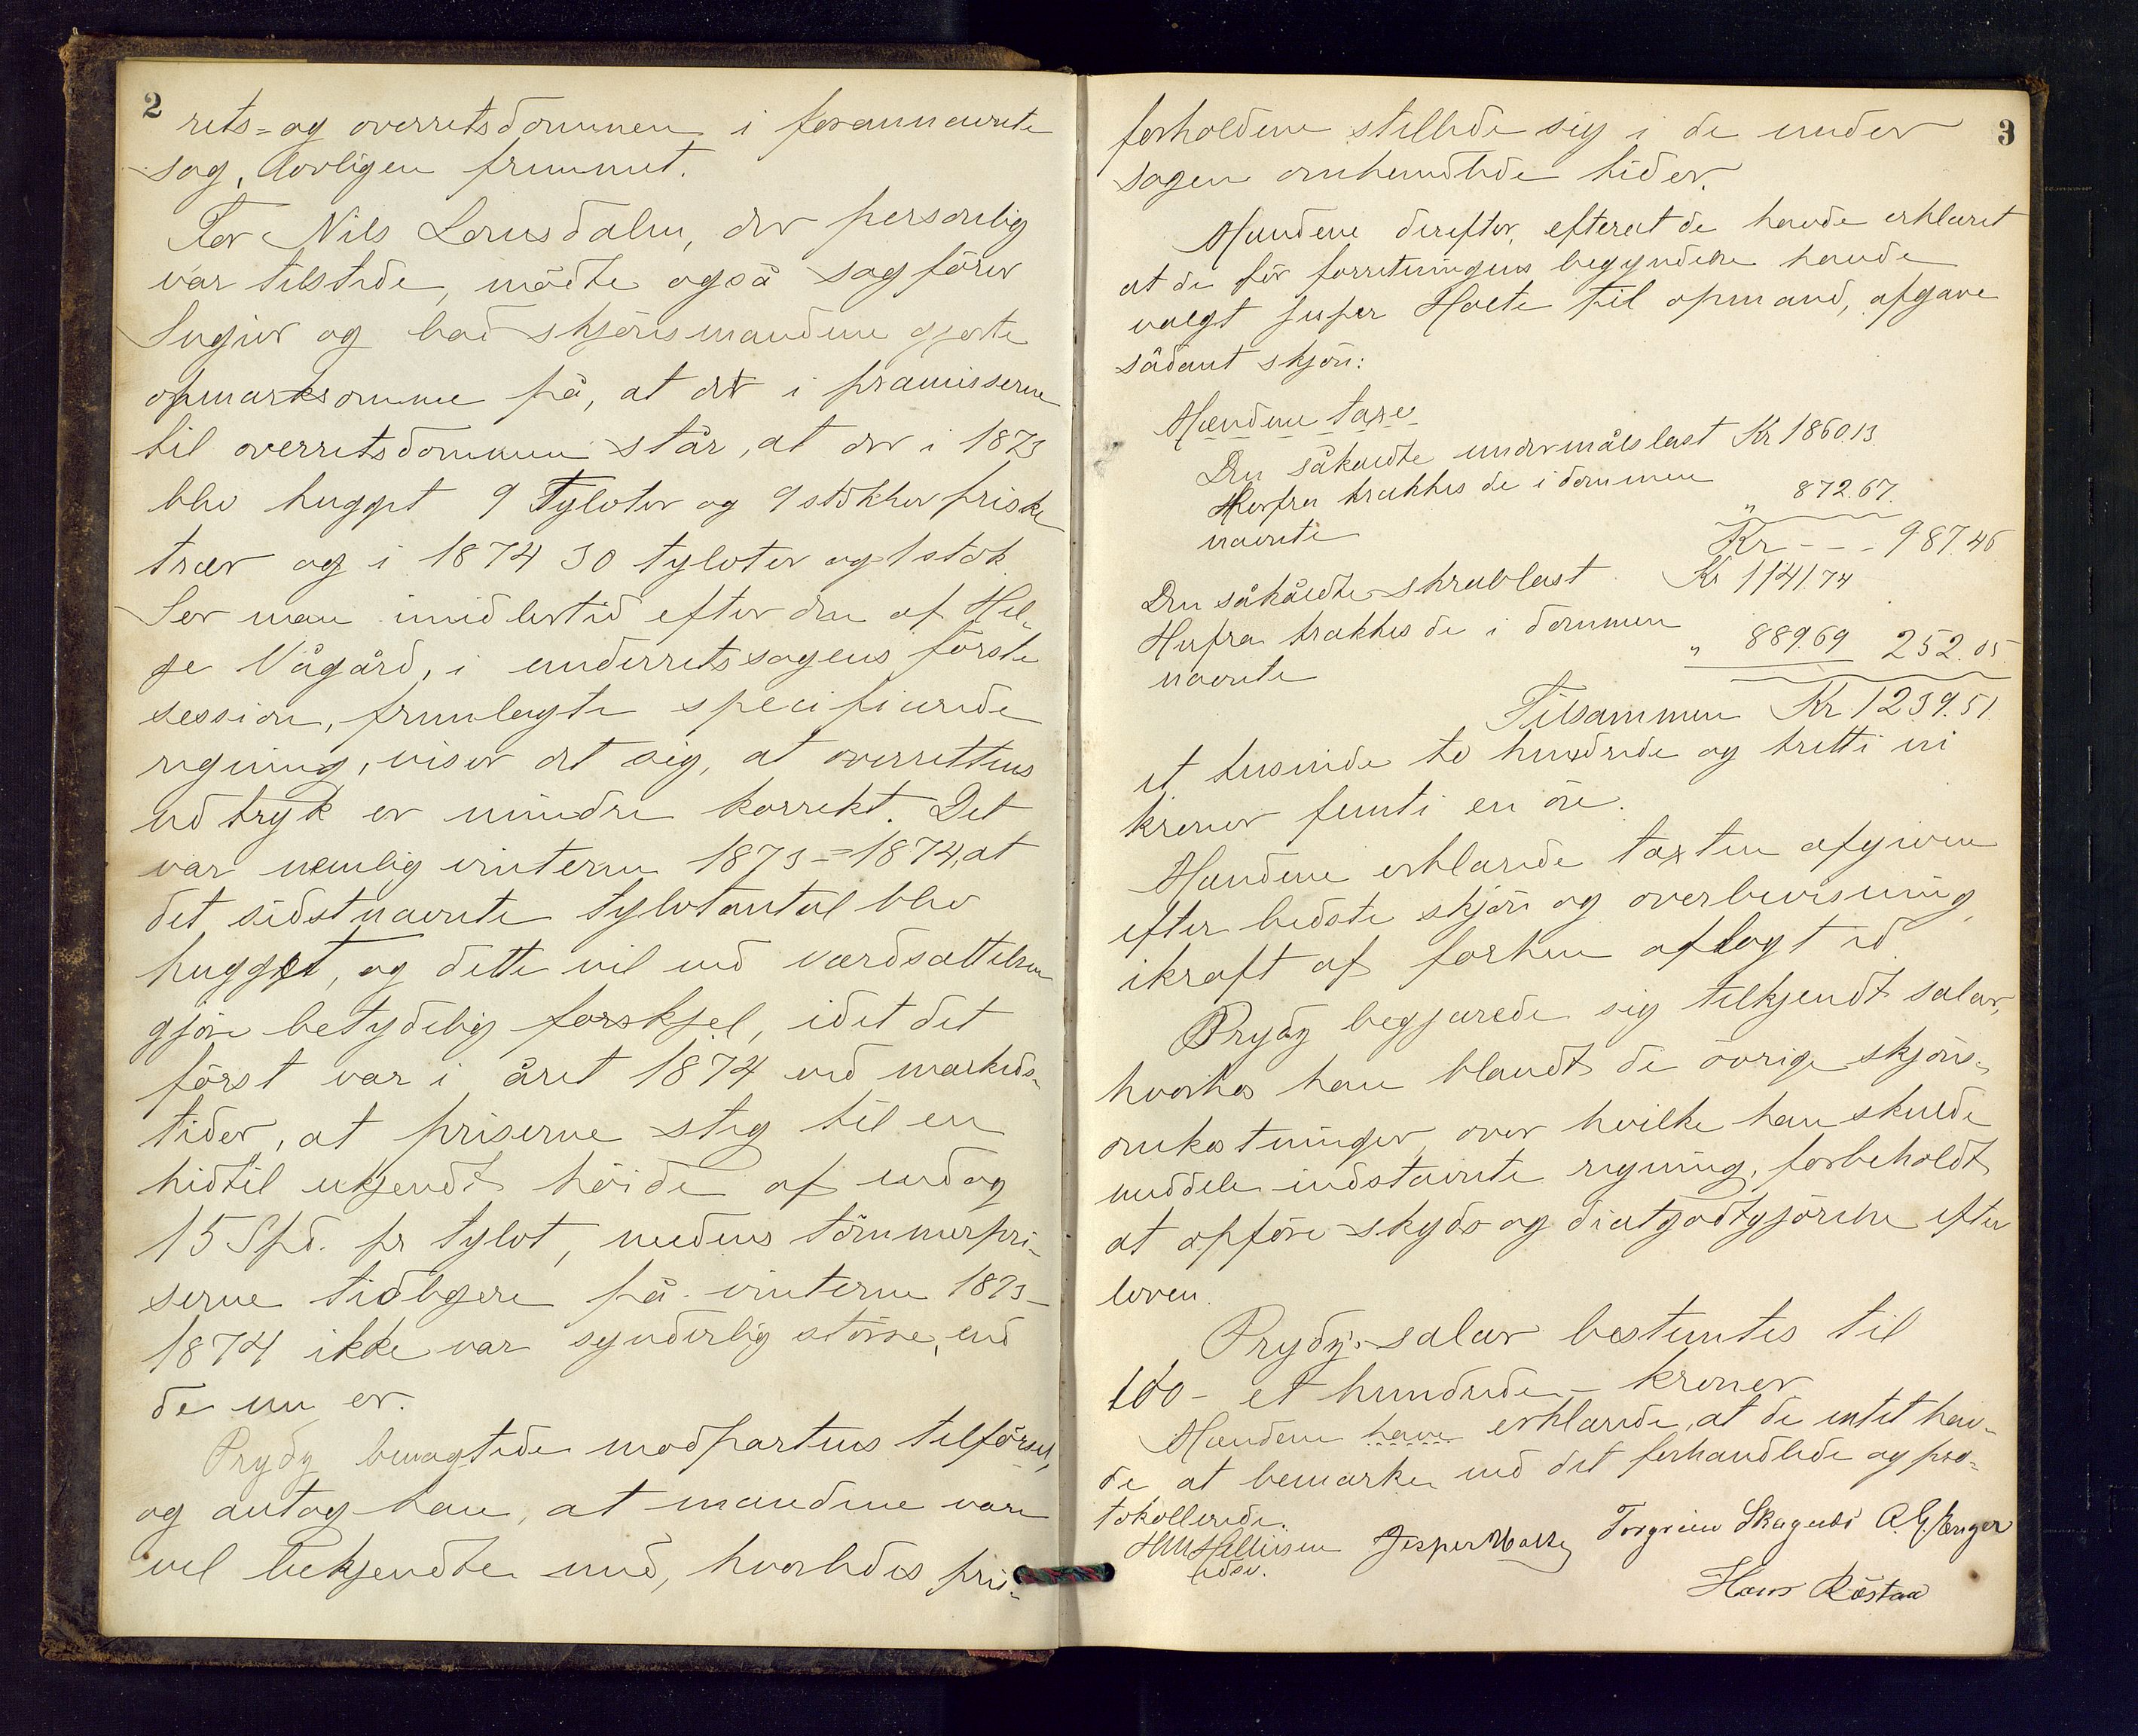 2
rets- og overretsdommen i forannævnte
sag, lovligen fremmet.
For Nils Lonsdalen, der personlig
var tilstede, mödte også sagförer
Singier og bad skjönsmændene gjorte
opmærksomme på, at det i præmisserne
til overretsdommen står, at der i 1873
blev hugget 9 Tylvter og 9 stokker friske
træer og i 1874 30 tylvter og 1 stok.
Ser man imidlertid efter den af Hel-
ge Vågård, i underretssagens förste
session, fremlagte specificerede
regning, viser det sig, at overrettens
udtryk er mindre korrekt. Det
var nemlig vinteren 1873=1874, at
det sidstnævnte tylvtantal blev
hugget, og dette vil ved værdsættelsen
gjöre betydelig forskjel, idet det
först var i året 1874 ved markeds-
tider, at priserne steg til en
hidtil ukjendt höide af endog
15 Spd. pr tylvt, medens tömmerpri-
serne tidligere på vinteren 1873-
1874 ikke var synderlig större, end
de nu er.
Prydz benægtede modpartens tilförsel,
og antog han, at mændene vare
vel bekjendte med, hvorledes pris-
3
forholdene stillede sig i de under
sagen omhandlede tider.
Mændene derefter, efterat de havde erklæret
at de för forretningens begyndelse havde
valgt Jesper Holte til opmand, afgave
sådant skjön:
Mændene taxe
Den såkaldte undermålslast Kr 1860.13.
Herfra trækkes de i dommen
nævnte " 872.67.
Kr - - - 987.46
Den såkaldte skrablast Kr 1141.74
Herfra trækkes de i dommen
nævnte " 889.69 252.05.
Tilsammen Kr. 1239.51.
et tusinde to hundrede og tretti ni
kroner femti en öre.
Mændene erklærede taxten afgiven
efter bedste skjön og overbevisning,
ikraft af forhen aflagt ed.
Prydz begjærede sig tilkjendt salær,
hvorhos han blandt de övrige skjöns-
omkostninger, over hvilke han skulde
meddele indstævnte regning, forbeholdt
at opföre skyds og diætgodtgjörelse efter
loven.
Prydz's salær bestemtes til
100 - et hundrede - kroner
Mændene have erklærede, at de intet hav-
de at bemærke ved det forhandlede og pro-
tokollerede.
Jesper Holte Torgrim Skagnæs A. G. Ænger
edsv.
Hans Röstaa